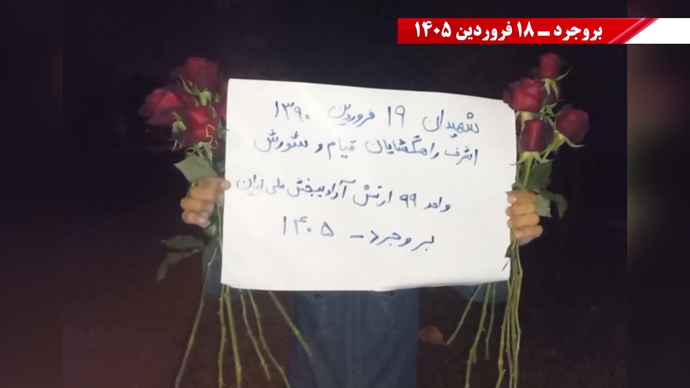 بروجرد ــ ۱۸ فروردین ۱۴۰۵
شهیدان ۱۹ فروردین ۱۳۹۰
اشرف راهگشایان قیام و شورش
واحد ۹۹ ارتش آزادیبخش ملی ایران
بروجرد ـ ۱۴۰۵